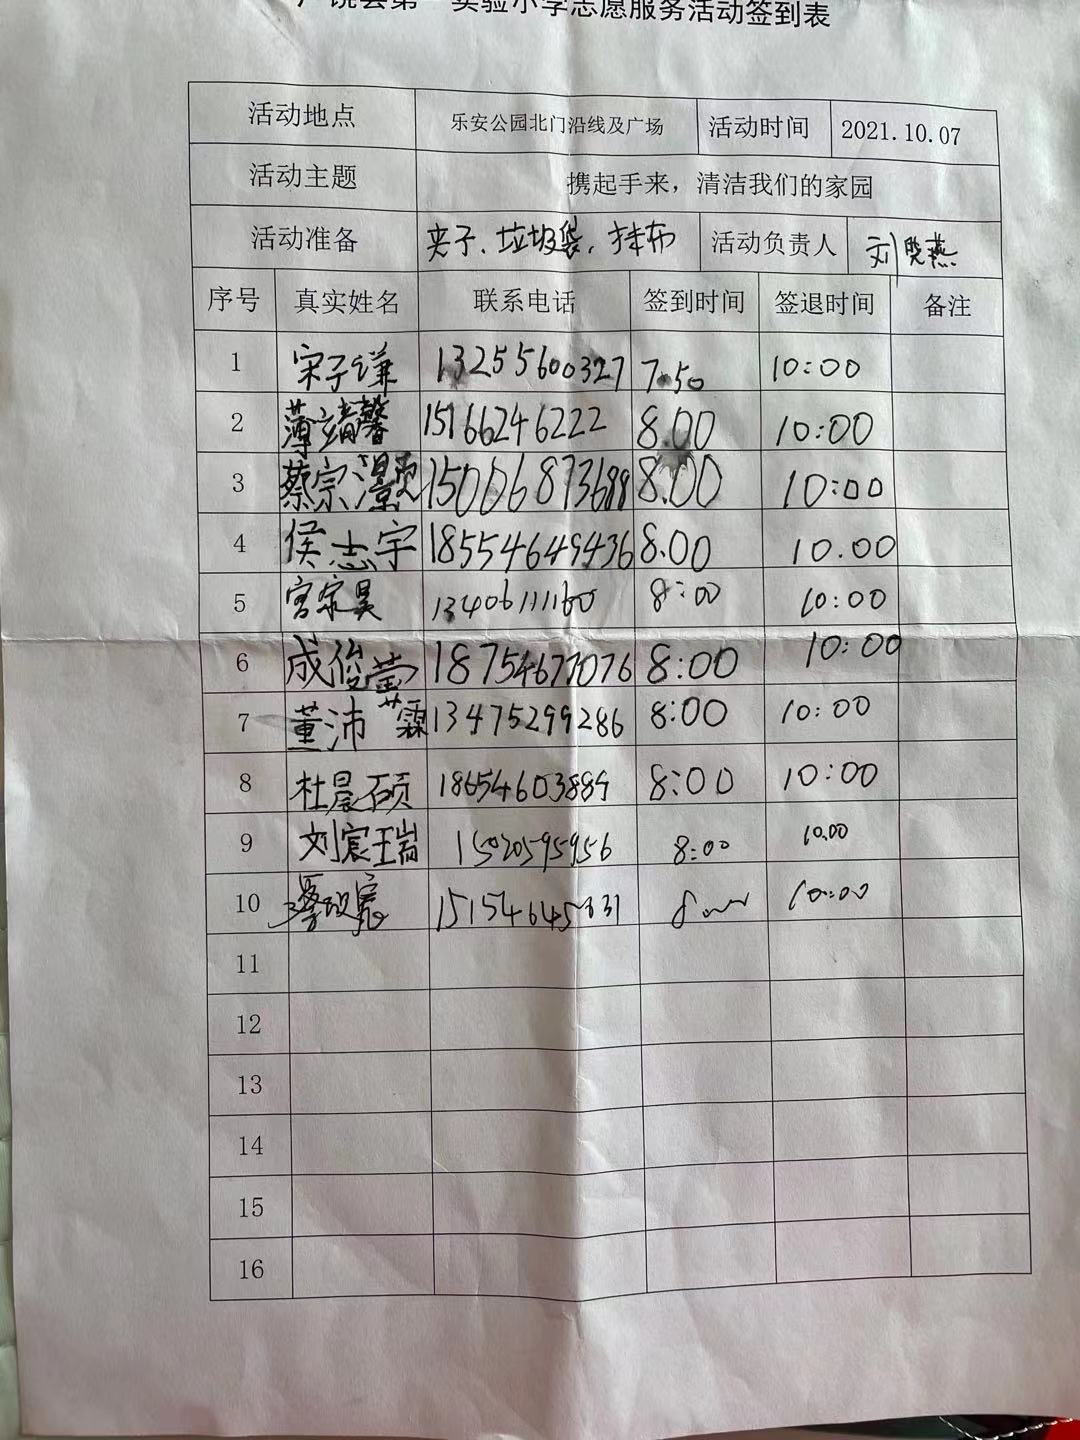 广饶县第一实验小学志愿服务活动签到表
活动地点 乐安公园北门沿线及广场 活动时间 2021.10.07
活动主题 携起手来，清洁我们的家园
活动准备 夹子、垃圾袋、抹布 活动负责人 刘晓燕
序号 真实姓名 联系电话 签到时间 签退时间 备注
1 宋子谦 13255600327 7.50 10:00
2 薄靖馨 15166246222 8.00 10:00
3 蔡宗灏 15006873688 8.00 10:00
4 侯志宇 18554649436 8.00 10.00
5 宫宗昊 13406111160 8:00 10:00
6 成俊莹 18754677076 8:00 10:00
7 董沛霖 13475299286 8:00 10:00
8 杜晨硕 18654603889 8:00 10:00
9 刘宸瑞 15020595956 8:00 10.00
10 15154645331 10:00
11
12
13
14
15
16